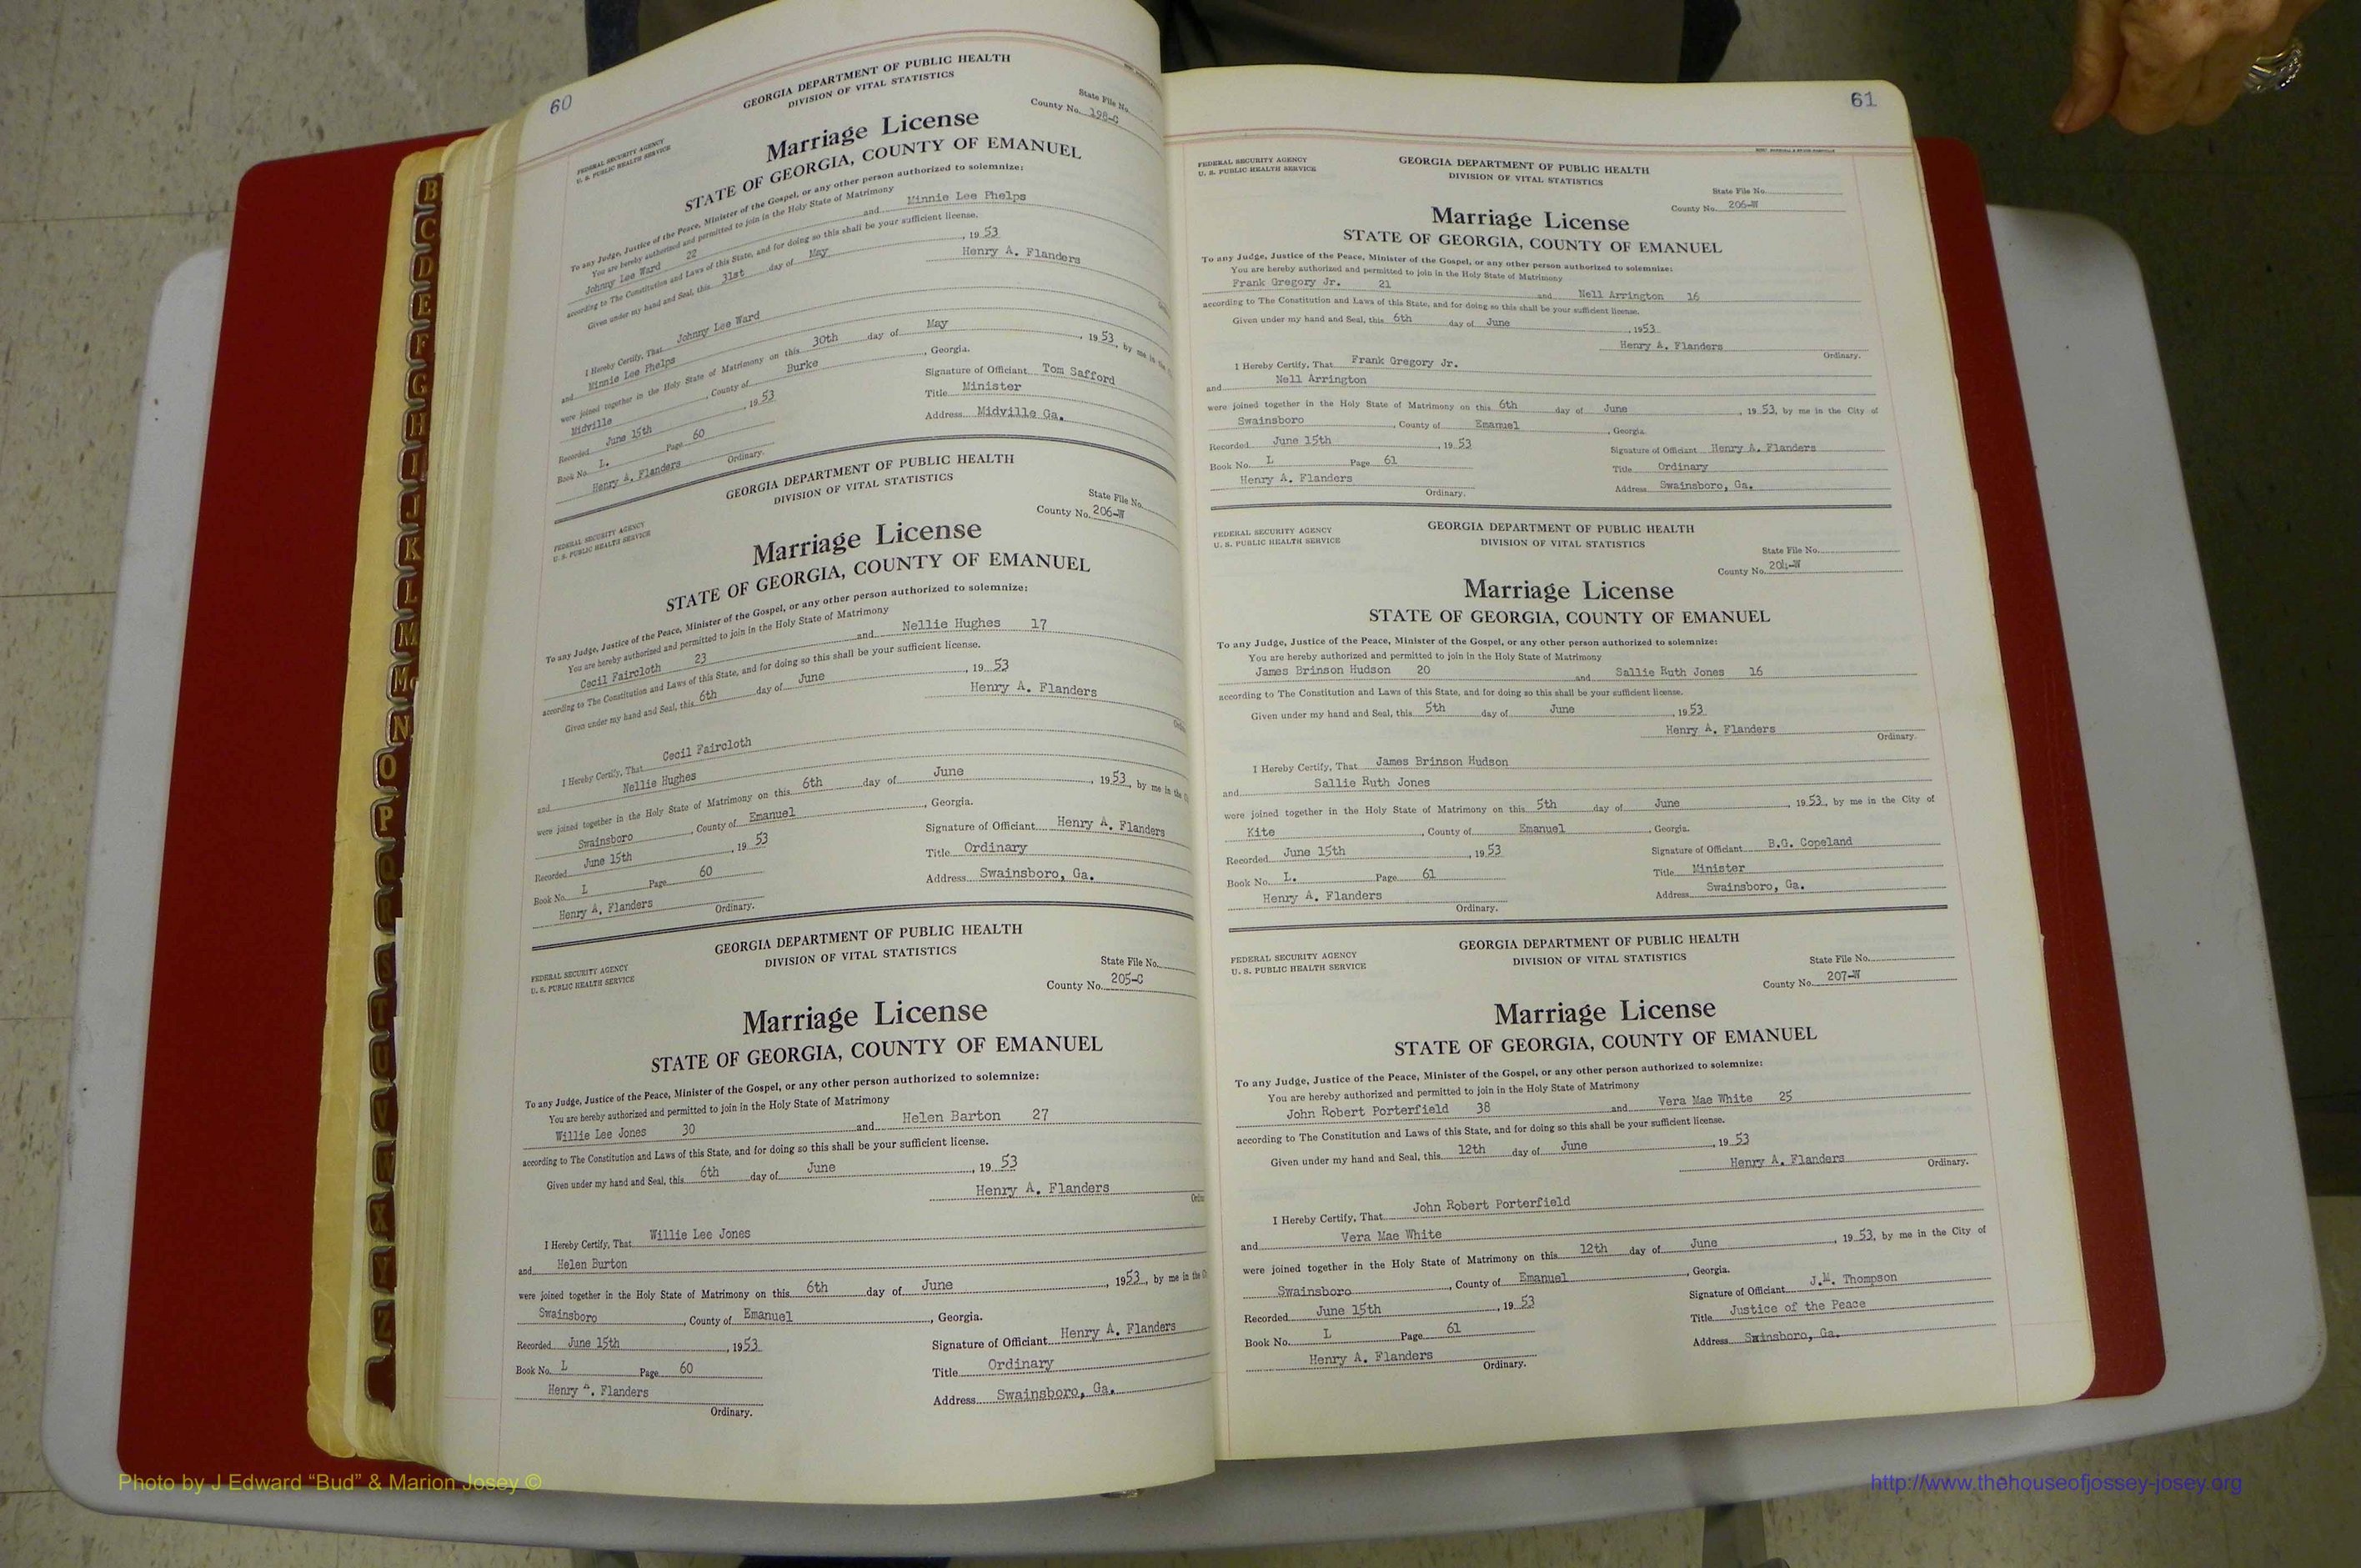 60
GEORGIA DEPARTMENT OF PUBLIC HEALTH
DIVISION OF VITAL STATISTICS
FEDERAL SECURITY AGENCY
U. S. PUBLIC HEALTH SERVICE
State File No.
County No. 198-C
Marriage License
STATE OF GEORGIA, COUNTY OF EMANUEL
To any Judge, Justice of the Peace, Minister of the Gospel, or any other person authorized to solemnize:
You are hereby authorized and permitted to join in the Holy State of Matrimony
Johnny Lee Ward 22 and Minnie Lee Phelps
according to The Constitution and Laws of this State, and for doing so this shall be your sufficient license.
Given under my hand and Seal, this 31st day of May, 1953
Henry A. Flanders
I Hereby Certify, That Johnny Lee Ward
and Minnie Lee Phelps
were joined together in the Holy State of Matrimony on this 30th day of May, 1953, by me in the
Midville, County of Burke, Georgia.
Recorded June 15th, 1953
Signature of Officiant Tom Safford
Book No. L. Page 60
Title Minister
Henry A. Flanders
Address Midville Ga.
Ordinary.
GEORGIA DEPARTMENT OF PUBLIC HEALTH
DIVISION OF VITAL STATISTICS
FEDERAL SECURITY AGENCY
U. S. PUBLIC HEALTH SERVICE
State File No.
County No. 206-W
Marriage License
STATE OF GEORGIA, COUNTY OF EMANUEL
To any Judge, Justice of the Peace, Minister of the Gospel, or any other person authorized to solemnize:
You are hereby authorized and permitted to join in the Holy State of Matrimony
Cecil Faircloth 23 and Nellie Hughes 17
according to The Constitution and Laws of this State, and for doing so this shall be your sufficient license.
Given under my hand and Seal, this 6th day of June, 1953
Henry A. Flanders
I Hereby Certify, That Cecil Faircloth
and Nellie Hughes
were joined together in the Holy State of Matrimony on this 6th day of June, 1953, by me in the
Swainsboro, County of Emanuel, Georgia.
Recorded June 15th, 1953
Signature of Officiant Henry A. Flanders
Book No. L Page 60
Title Ordinary
Henry A. Flanders
Address Swainsboro, Ga.
Ordinary.
GEORGIA DEPARTMENT OF PUBLIC HEALTH
DIVISION OF VITAL STATISTICS
FEDERAL SECURITY AGENCY
U. S. PUBLIC HEALTH SERVICE
State File No.
County No. 205-C
Marriage License
STATE OF GEORGIA, COUNTY OF EMANUEL
To any Judge, Justice of the Peace, Minister of the Gospel, or any other person authorized to solemnize:
You are hereby authorized and permitted to join in the Holy State of Matrimony
Willie Lee Jones 30 and Helen Barton 27
according to The Constitution and Laws of this State, and for doing so this shall be your sufficient license.
Given under my hand and Seal, this 6th day of June, 1953
Henry A. Flanders
I Hereby Certify, That Willie Lee Jones
and Helen Burton
were joined together in the Holy State of Matrimony on this 6th day of June, 1953, by me in the
Swainsboro, County of Emanuel, Georgia.
Recorded June 15th, 1953
Signature of Officiant Henry A. Flanders
Book No. L Page 60
Title Ordinary
Henry A. Flanders
Address Swainsboro, Ga.
Ordinary.
61
FEDERAL SECURITY AGENCY
U. S. PUBLIC HEALTH SERVICE
GEORGIA DEPARTMENT OF PUBLIC HEALTH
DIVISION OF VITAL STATISTICS
State File No.
County No. 206-W
Marriage License
STATE OF GEORGIA, COUNTY OF EMANUEL
To any Judge, Justice of the Peace, Minister of the Gospel, or any other person authorized to solemnize:
You are hereby authorized and permitted to join in the Holy State of Matrimony
Frank Gregory Jr. 21 and Nell Arrington 16
according to The Constitution and Laws of this State, and for doing so this shall be your sufficient license.
Given under my hand and Seal, this 6th day of June, 1953
Henry A. Flanders
Ordinary.
I Hereby Certify, That Frank Gregory Jr.
and Nell Arrington
were joined together in the Holy State of Matrimony on this 6th day of June, 1953, by me in the City of
Swainsboro, County of Emanuel, Georgia.
Recorded June 15th, 1953
Signature of Officiant Henry A. Flanders
Book No. L Page 61
Title Ordinary
Henry A. Flanders
Address Swainsboro, Ga.
Ordinary.
FEDERAL SECURITY AGENCY
U. S. PUBLIC HEALTH SERVICE
GEORGIA DEPARTMENT OF PUBLIC HEALTH
DIVISION OF VITAL STATISTICS
State File No.
County No. 204-W
Marriage License
STATE OF GEORGIA, COUNTY OF EMANUEL
To any Judge, Justice of the Peace, Minister of the Gospel, or any other person authorized to solemnize:
You are hereby authorized and permitted to join in the Holy State of Matrimony
James Brinson Hudson 20 and Sallie Ruth Jones 16
according to The Constitution and Laws of this State, and for doing so this shall be your sufficient license.
Given under my hand and Seal, this 5th day of June, 1953
Henry A. Flanders
Ordinary.
I Hereby Certify, That James Brinson Hudson
and Sallie Ruth Jones
were joined together in the Holy State of Matrimony on this 5th day of June, 1953, by me in the City of
Kite, County of Emanuel, Georgia.
Recorded June 15th, 1953
Signature of Officiant B.G. Copeland
Book No. L. Page 61
Title Minister
Henry A. Flanders
Address Swainsboro, Ga.
Ordinary.
FEDERAL SECURITY AGENCY
U. S. PUBLIC HEALTH SERVICE
GEORGIA DEPARTMENT OF PUBLIC HEALTH
DIVISION OF VITAL STATISTICS
State File No.
County No. 207-W
Marriage License
STATE OF GEORGIA, COUNTY OF EMANUEL
To any Judge, Justice of the Peace, Minister of the Gospel, or any other person authorized to solemnize:
You are hereby authorized and permitted to join in the Holy State of Matrimony
John Robert Porterfield 38 and Vera Mae White 25
according to The Constitution and Laws of this State, and for doing so this shall be your sufficient license.
Given under my hand and Seal, this 12th day of June, 1953
Henry A. Flanders
Ordinary.
I Hereby Certify, That John Robert Porterfield
and Vera Mae White
were joined together in the Holy State of Matrimony on this 12th day of June, 1953, by me in the City of
Swainsboro, County of Emanuel, Georgia.
Recorded June 15th, 1953
Signature of Officiant J.M. Thompson
Book No. L Page 61
Title Justice of the Peace
Henry A. Flanders
Address Swinsboro, Ga.
Ordinary.
B
C
D
E
F
G
H
I
J
K
L
M
Mc
N
O
P
Q
R
S
T
U
V
W
X
Y
Z
Photo by J Edward “Bud” & Marion Josey ©
http://www.thehouseofjossey-josey.org